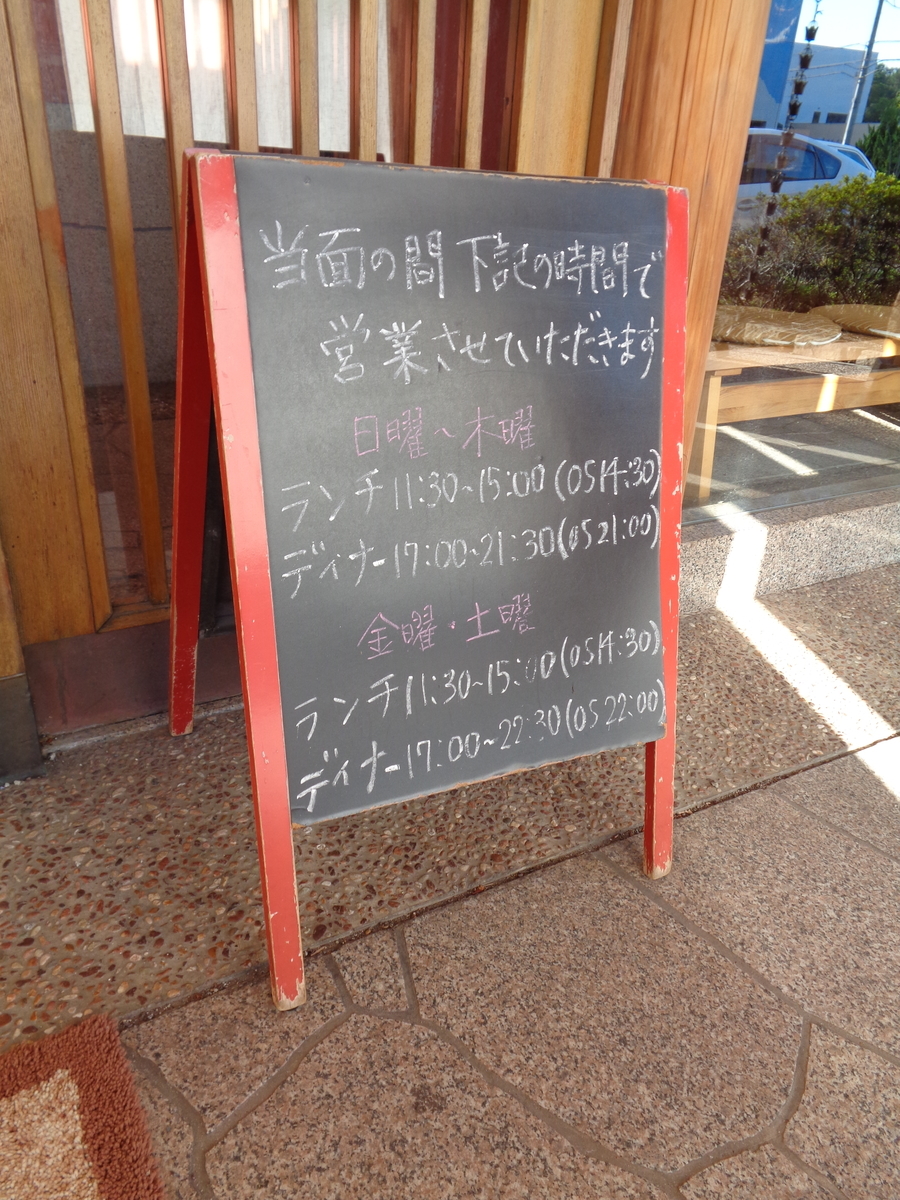 当面の間 下記の時間で
営業させていただきます
日曜～木曜
ランチ 11:30~15:00 (OS14:30)
ディナー 17:00~21:30 (OS21:00)
金曜・土曜
ランチ 11:30~15:00 (OS14:30)
ディナー 17:00~22:30 (OS22:00)